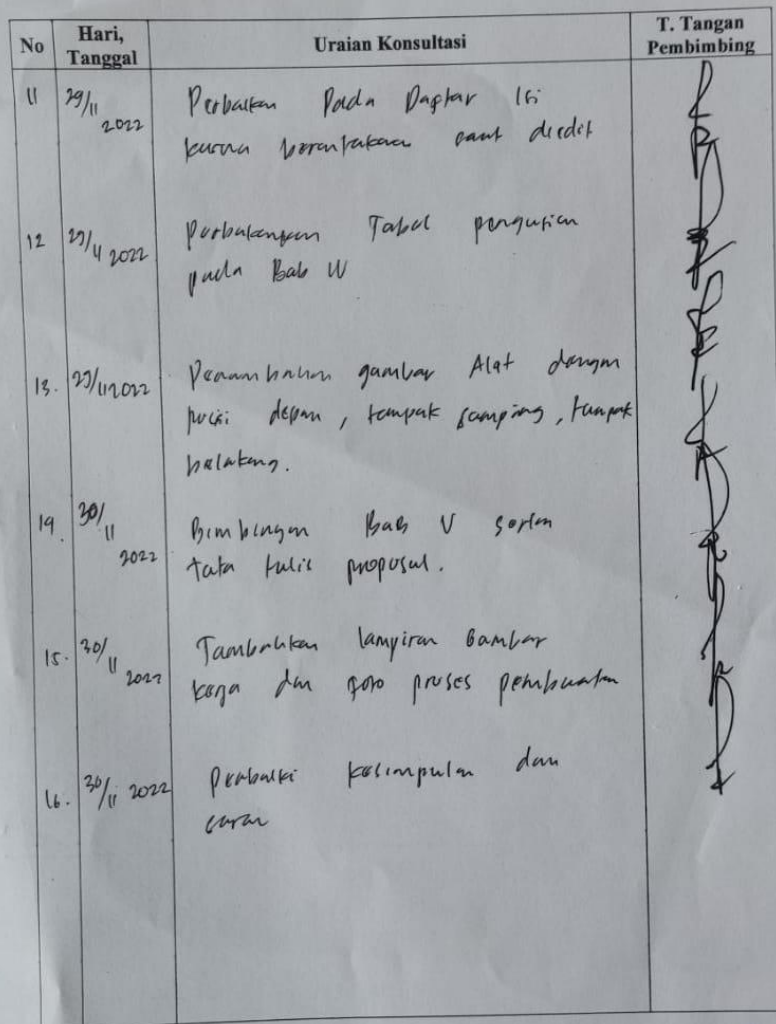 No
Hari, Tanggal
Uraian Konsultasi
T. Tangan Pembimbing
11 29/11 2022 Perbaikan Pada Daftar Isi
karna berantakan saat diedit
12 29/11 2022 Tabel pengujian
pada Bab IV
13. 29/11 2022 Penambahan gambar Alat dengan
posisi depan, tampak samping, tampak
belakang.
14. 30/11 2022 Bimbingan Bab V
tata tulis proposal.
15. 30/11 2022 Tambahkan lampiran Gambar
kerja dan foto proses pembuatan
16. 30/11 2022 Perbaiki kesimpulan dan
saran